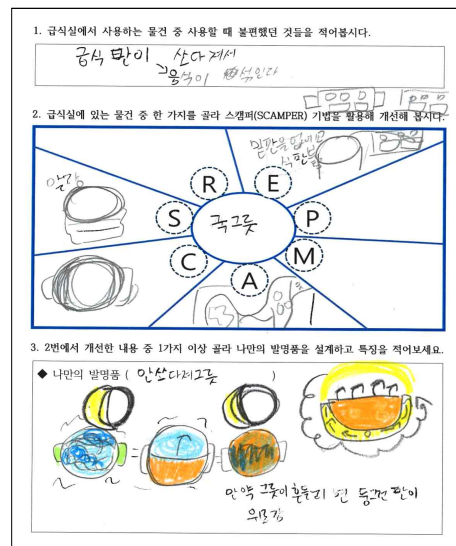 1. 급식실에서 사용하는 물건 중 사용할 때 불편했던 것들을 적어봅시다.
급식 판이 쏘다져서
음식이 섞인다
2. 급식실에 있는 물건 중 한 가지를 골라 스캠퍼(SCAMPER) 기법을 활용해 개선해 봅시다.
밑판을 없애고
식판
말랑
R E
S 국그릇 P
C A M
3. 2번에서 개선한 내용 중 1가지 이상 골라 나만의 발명품을 설계하고 특징을 적어보세요.
◆ 나만의 발명품 ( 안쏘다제그릇 )
만약 그릇이 흔들리 면 동그런 판이
위로감